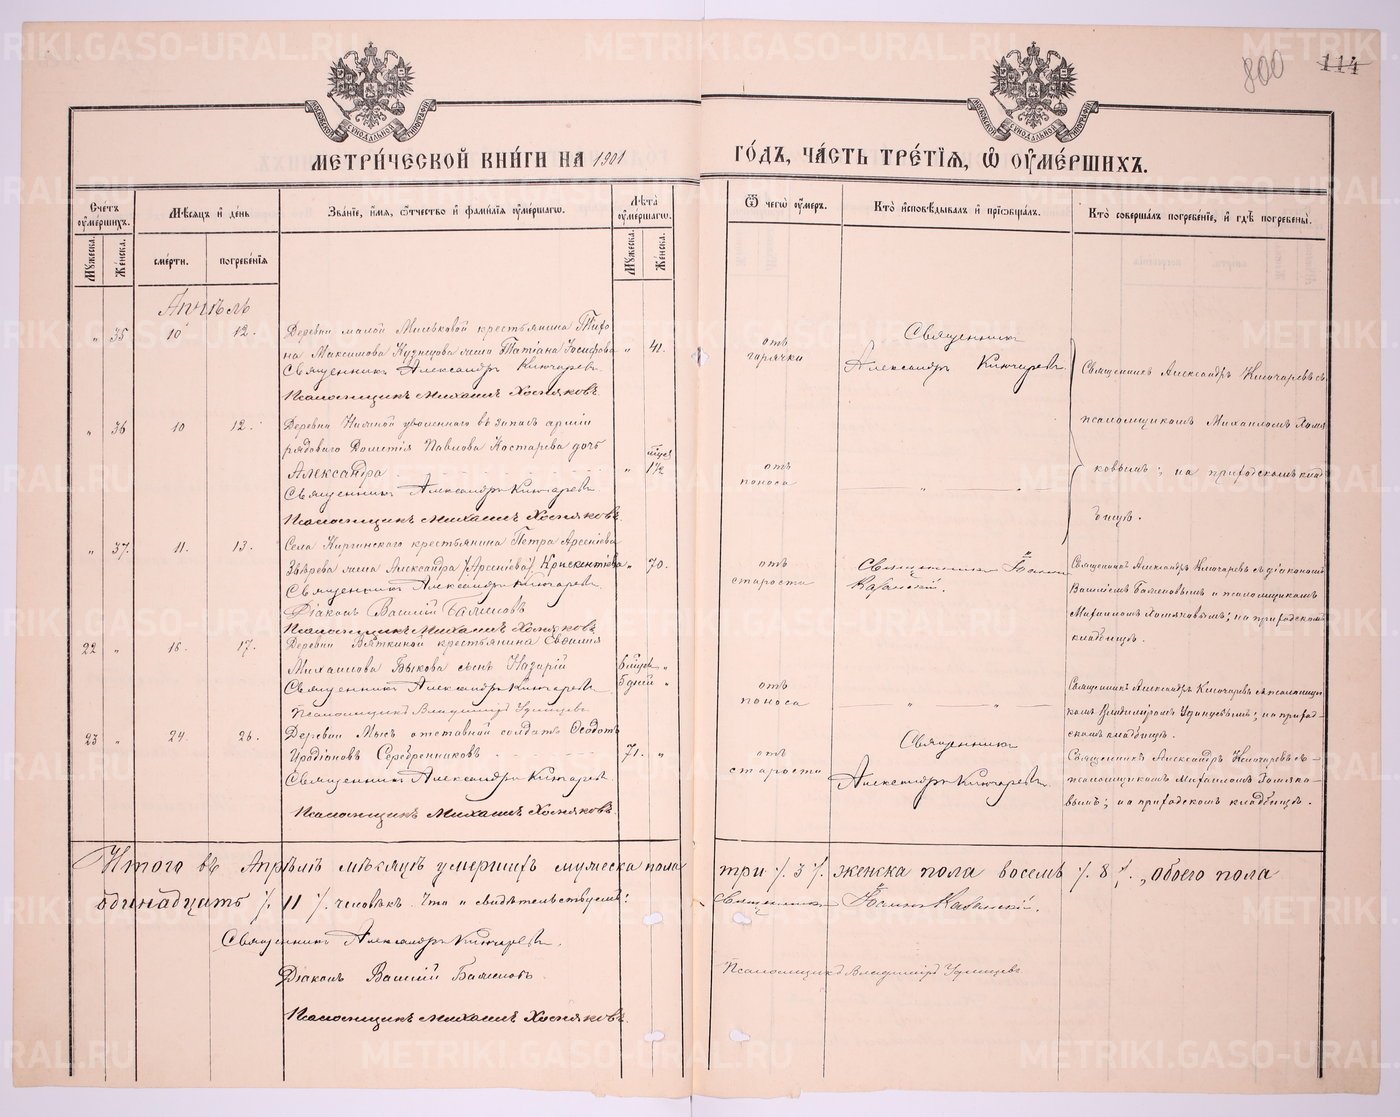 800 114
МЕТРИ́ЧЕСКОЙ КНИ́ГИ НА 1901 ГО́ДЪ, ЧА́СТЬ ТРЕ́ТІЯ, Ѡ҆ ОУ҆МЕ́РШИХЪ.
Сче́тъ оу҆ме́ршихъ.
Мѣсѧцъ и҆ де́нь
Зва́нїе, и҆́мѧ, ѻ҆́тчество и҆ фами́лїѧ оу҆ме́ршагѡ.
Лѣ́та оу҆ме́ршагѡ.
Ѿ чегѡ̀ оу҆́меръ.
Кто̀ и҆сповѣ́довалъ и҆ прїѡбща́лъ.
Кто̀ соверша́лъ погребе́нїе, и҆ гдѣ̀ погребены̀.
Мꙋ́жеска. Же́нска. сме́рти. погребе́нїѧ Мꙋ́жеска. Же́нска.
Апрѣль
„ 35 10 12. Деревни малой Мильковой крестьянина Тихо
на Максимова Кузнецова жена Татіана Іосифова „ 41.
Священникъ Александръ Ключаревъ
Псаломщикъ Михаилъ Хомяковъ.
отъ
горячки
Священникъ
Александръ Ключаревъ.
Священникъ Александръ Ключаревъ съ
псаломщикомъ Михаиломъ Хомя
ковымъ; на приходскомъ клад
бищѣ.
„ 36 10 12. Деревни уволеннаго въ запасъ арміи
рядового Дометія Павлова Костарева дочь
Александра „ 1½
Священникъ Александръ Ключаревъ.
Псаломщикъ Михаилъ Хомяковъ.
отъ
поноса
— „ —
„ 37. 11. 13. Села Киргинскаго крестьянина Петра Арсеніева
Звѣрева жена Александра (Арсеніева) Крискентіева „ 70.
Священникъ Александръ Ключаревъ.
Діаконъ Василій Баженовъ
Псаломщикъ Михаилъ Хомяковъ
отъ
старости
Священникъ Іоаннъ
Казанскій.
Священникъ Александръ Ключаревъ съ діакономъ
Василіемъ Баженовымъ и псаломщикомъ
Михаиломъ Хомяковымъ; на приходскомъ
кладбищѣ.
22 „ 16. 17. Деревни Вяткиной крестьянина Евфимія
Михаилова Быкова сынъ Назарій 6 мѣс. „
Священникъ Александръ Ключаревъ. 5 дней „
Псаломщикъ Владиміръ Удинцевъ
отъ
поноса
— „ — „ —
Священникъ Александръ Ключаревъ съ псаломщи
комъ Владиміромъ Удинцевымъ; на приход-
скомъ кладбищѣ.
23 „ 24. 26. Деревни Мысъ отставной солдатъ Ѳеодотъ
Иродіоновъ Серебренниковъ. 71. „
Священникъ Александръ Ключаревъ.
Псаломщикъ Михаилъ Хомяковъ.
отъ
старости
Священникъ
Александръ Ключаревъ.
Священникъ Александръ Ключаревъ съ
псаломщикомъ Михаиломъ Хомяко-
вымъ; на приходскомъ кладбищѣ.
Итого въ Апрѣлѣ мѣсяцѣ умершихъ мужеска пола три /. 3 /. женска пола восемь /. 8 /. „обоего пола
одинадцать /. 11 /. человѣкъ. Что и свидѣтельствуемъ:
Священникъ Іоаннъ Казанскій.
Священникъ Александръ Ключаревъ.
Діаконъ Василій Баженовъ.
Псаломщикъ Владиміръ Удинцевъ
Псаломщикъ Михаилъ Хомяковъ.
METRIKI.GASO-URAL.RU